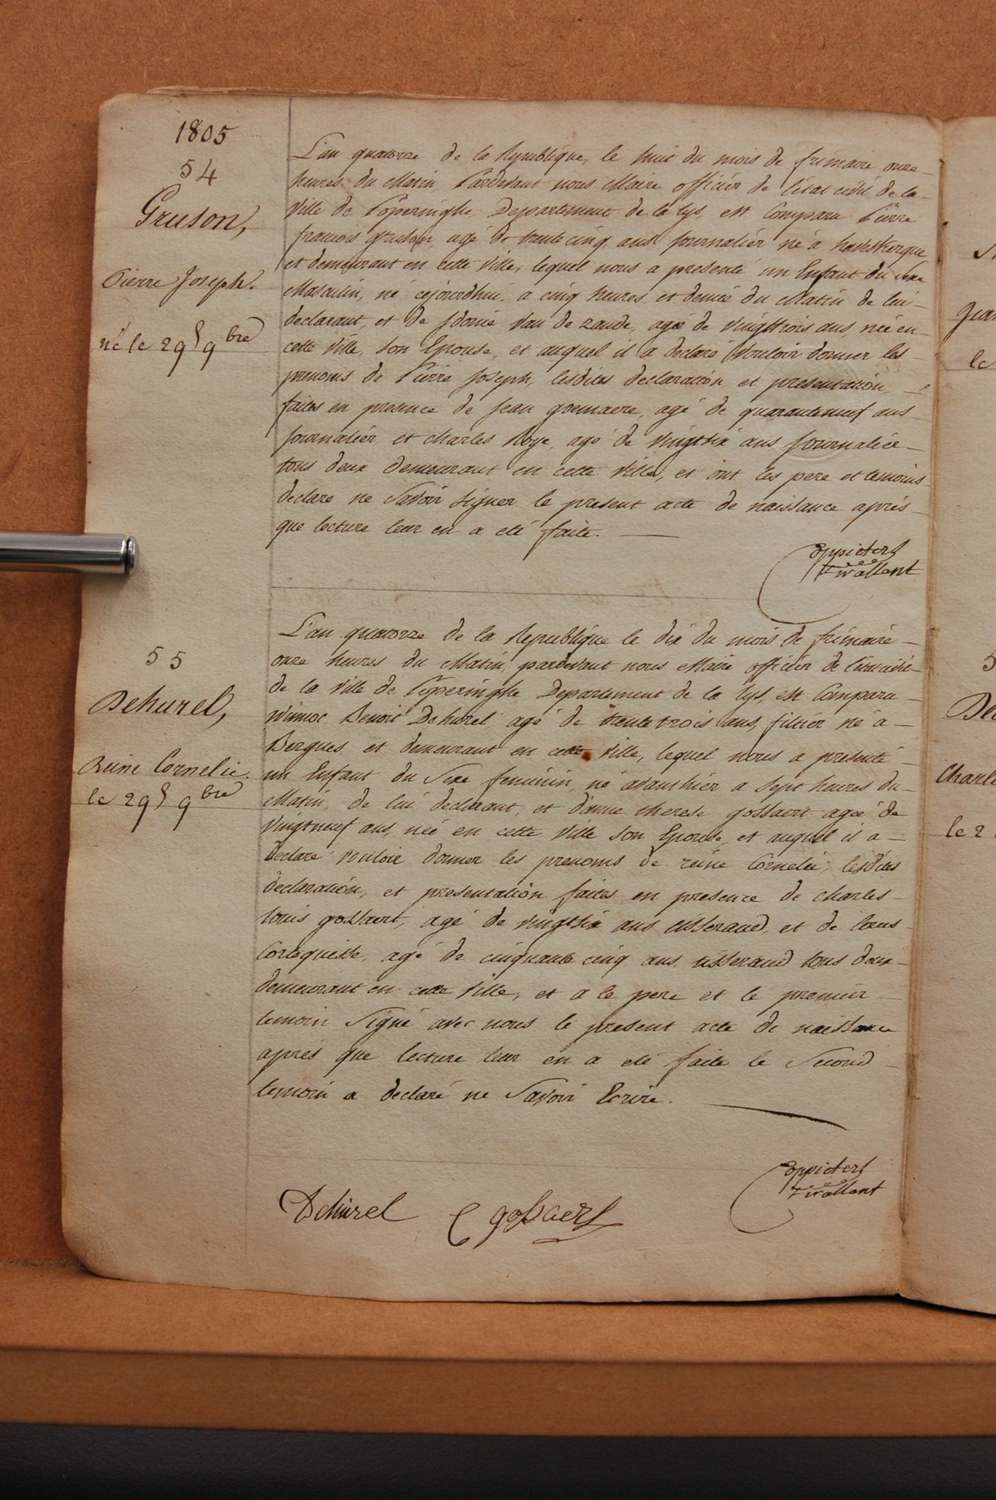 1805
54
Gruson,
Pierre Joseph.
né le 29 9bre
L'an quatorze de la Republique, le huit du mois de frimaire onze
heures du Matin, Pardevant nous Maire officier de l'état civil de la
ville de Poperinghe, Departement de la Lys, est Comparu Pierre
francois gruson, agé de trente cinq ans journaliér né a
et demeurant en cette ville, lequel nous a presenté un Enfant du sexe
Masculin, né cejourdhui, a cinq heures et demie du Matin de lui
declarant, et de van de zande, agée de vingttrois ans née en
cette ville, son Epouse, et auquel il a declaré vouloir donner les
prenoms de Pierre Joseph, lesdites declaration et presentation,
faites en presence de Jean goemaere, agé de quaranteneuf ans
journaliér et charles Roye, agé de vingtsix ans journaliér
tous deux demeurant en cette ville, et ont les pere et temoins
declaré ne savoir signer le present acte de naissance aprés
que lecture leur en a eté faite.
55
Dehurel,
Reine Cornelie.
le 29 9bre
L'an quatorze de la Republique le dix du mois de frimaire
onze heures du Matin, pardevant nous Maire officiér de l'état civil
de la ville de Poperinghe Departement de la Lys, est Comparu
winnoc Benoit Dehurel agé de trente trois ans, né a
Bergues, et demeurant en cette ville, lequel nous a presenté
un Enfant du Sexe feminin, né avanthier a Sept heures du
Matin, de lui declarant, et d'anne therese gossaert agée de
vingtneuf ans, née en cette ville son Epouse, et auquel il a
declaré vouloir donner les prenoms de reine Cornelie, lesdites
declaration, et presentation faites en presence de charles
louis gossaert, agé de vingtsix ans tisserand, et de
agé de cinquante cinq ans tisserand tous deux
demeurant en cette ville, et a le pere et le premier
temoin Signé avec nous le present acte de naissance
aprés que lecture leur en a eté faite le Second
temoin a declaré ne Savoir Ecrire.
Dehurel C gossaert